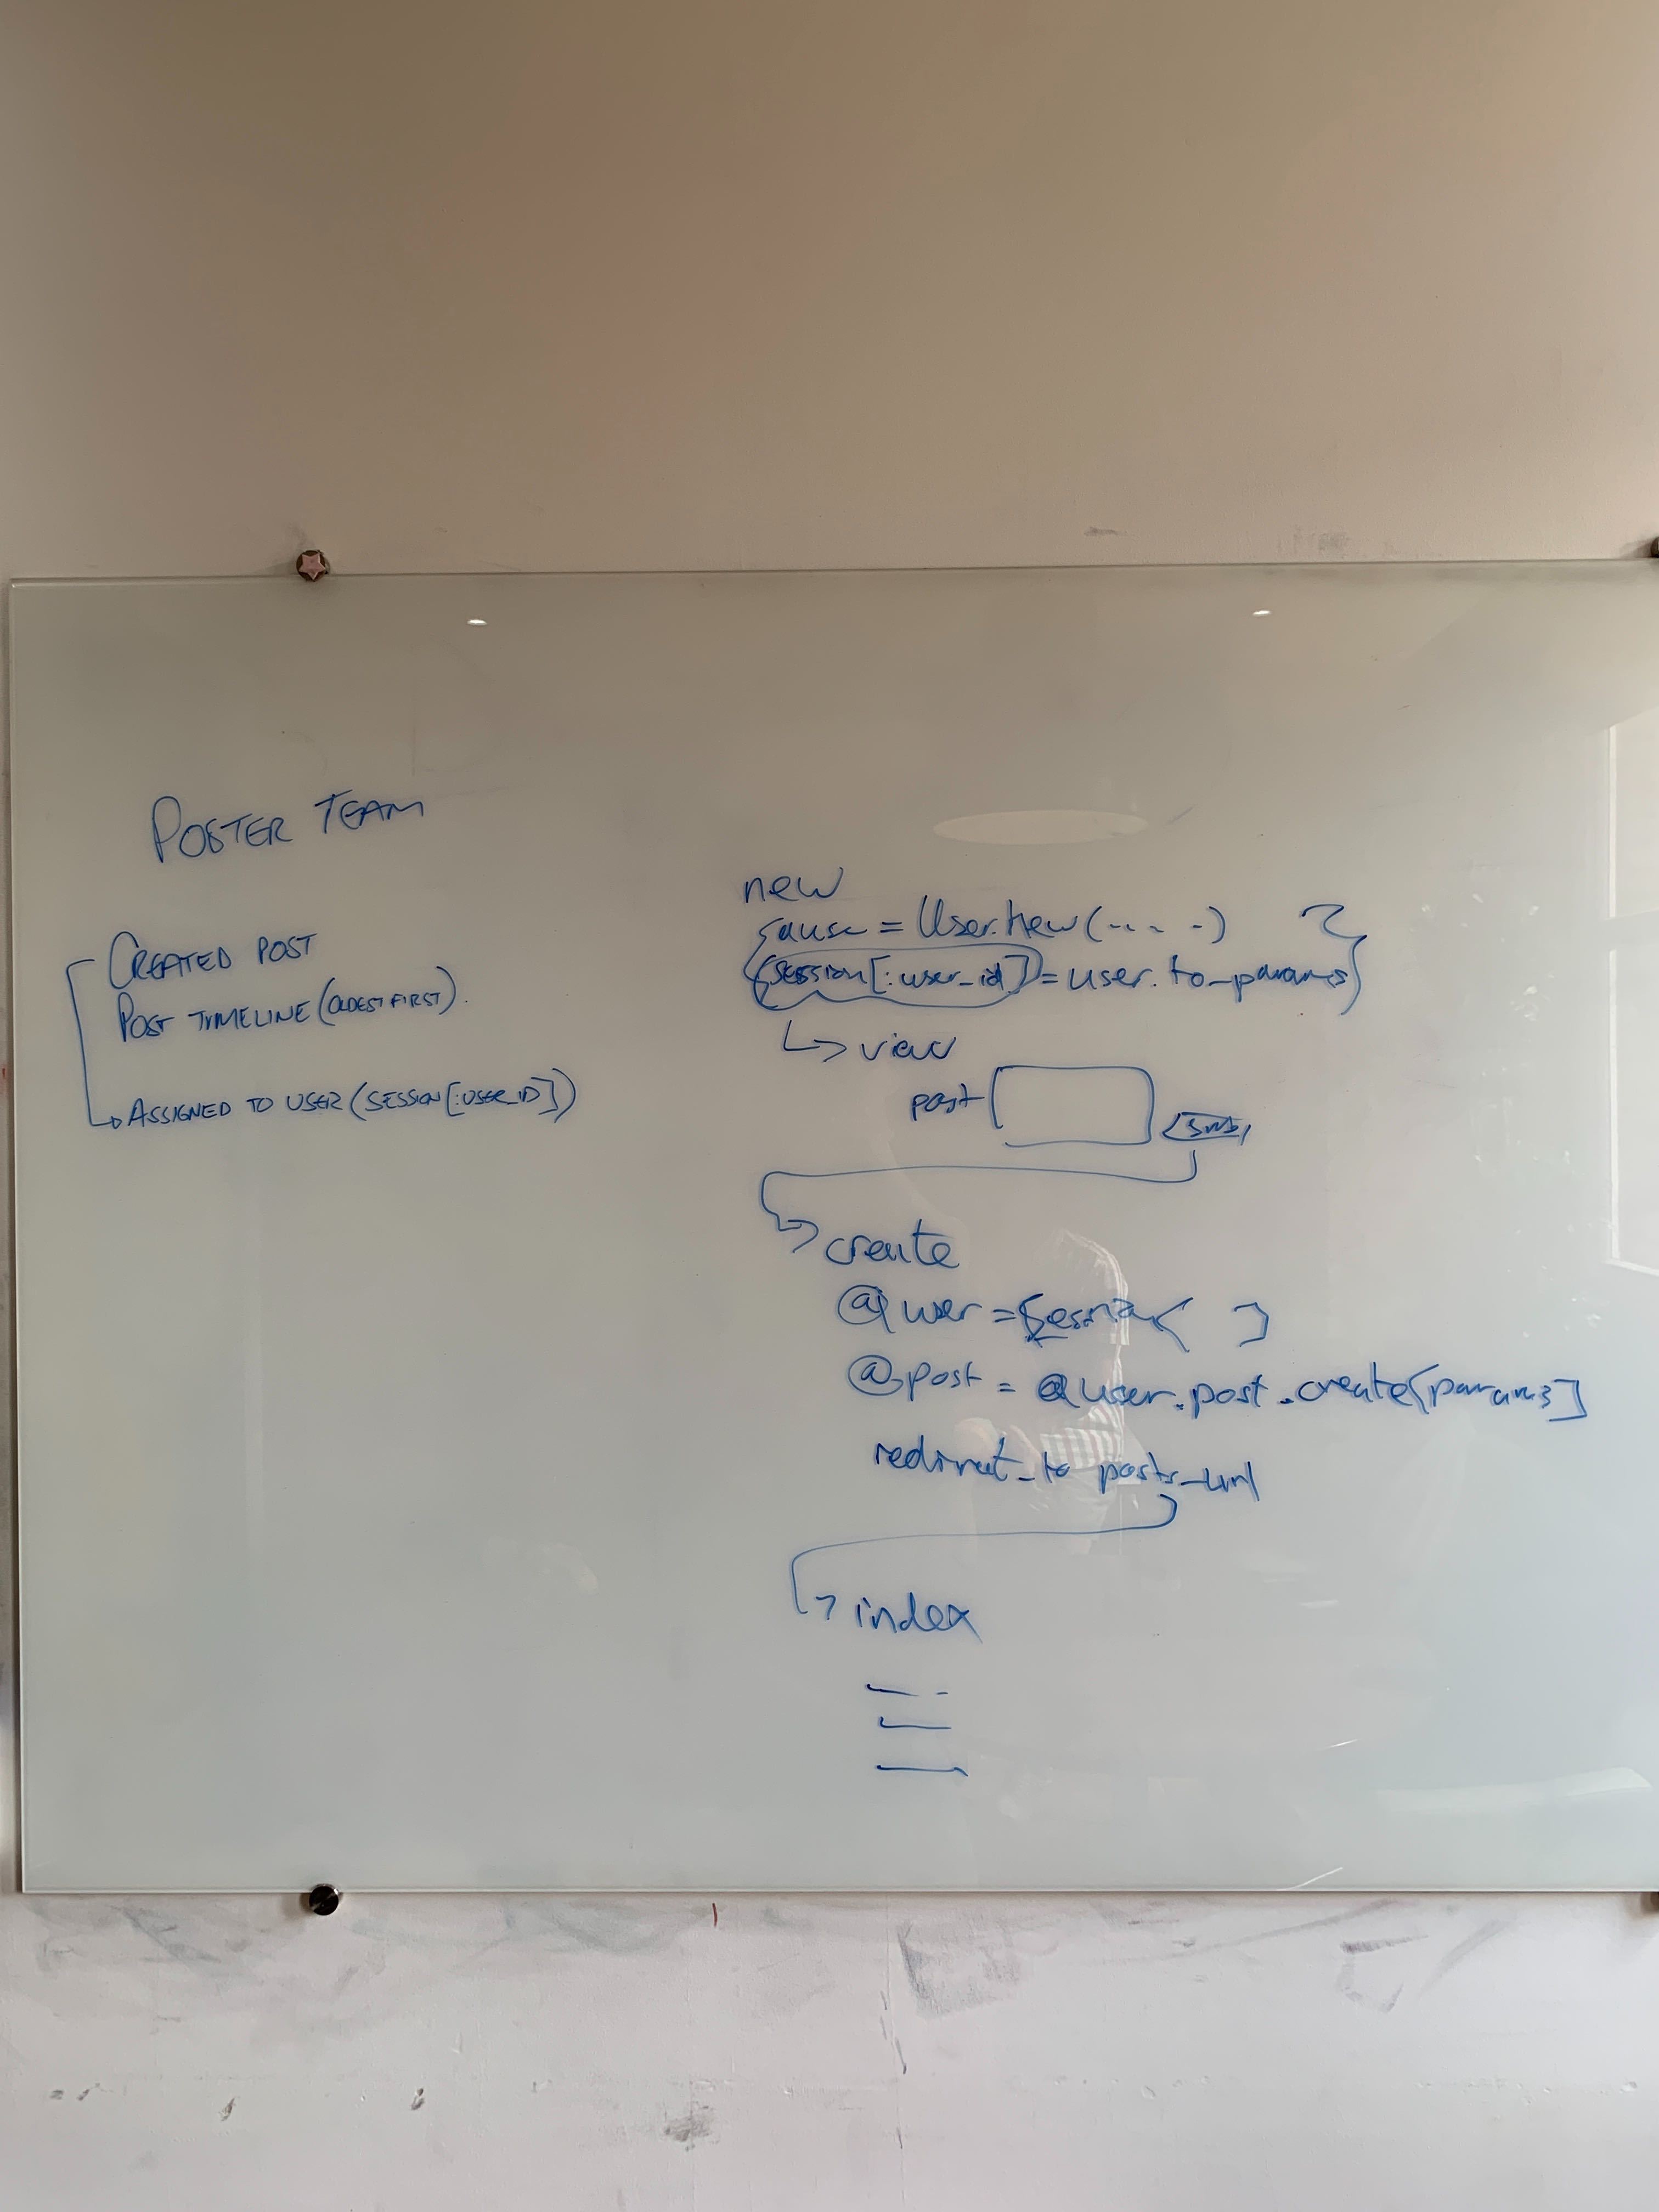 POSTER TEAM
CREATED POST
POST TIMELINE (OLDEST FIRST).
ASSIGNED TO USER (SESSION[:USER_ID])
new
= User.new(.. . .)
(session[:user_id]) = user.to_params
view
post
create
@user = [ ]
@post = @user.post.create[params]
redirect_to posts_url
index